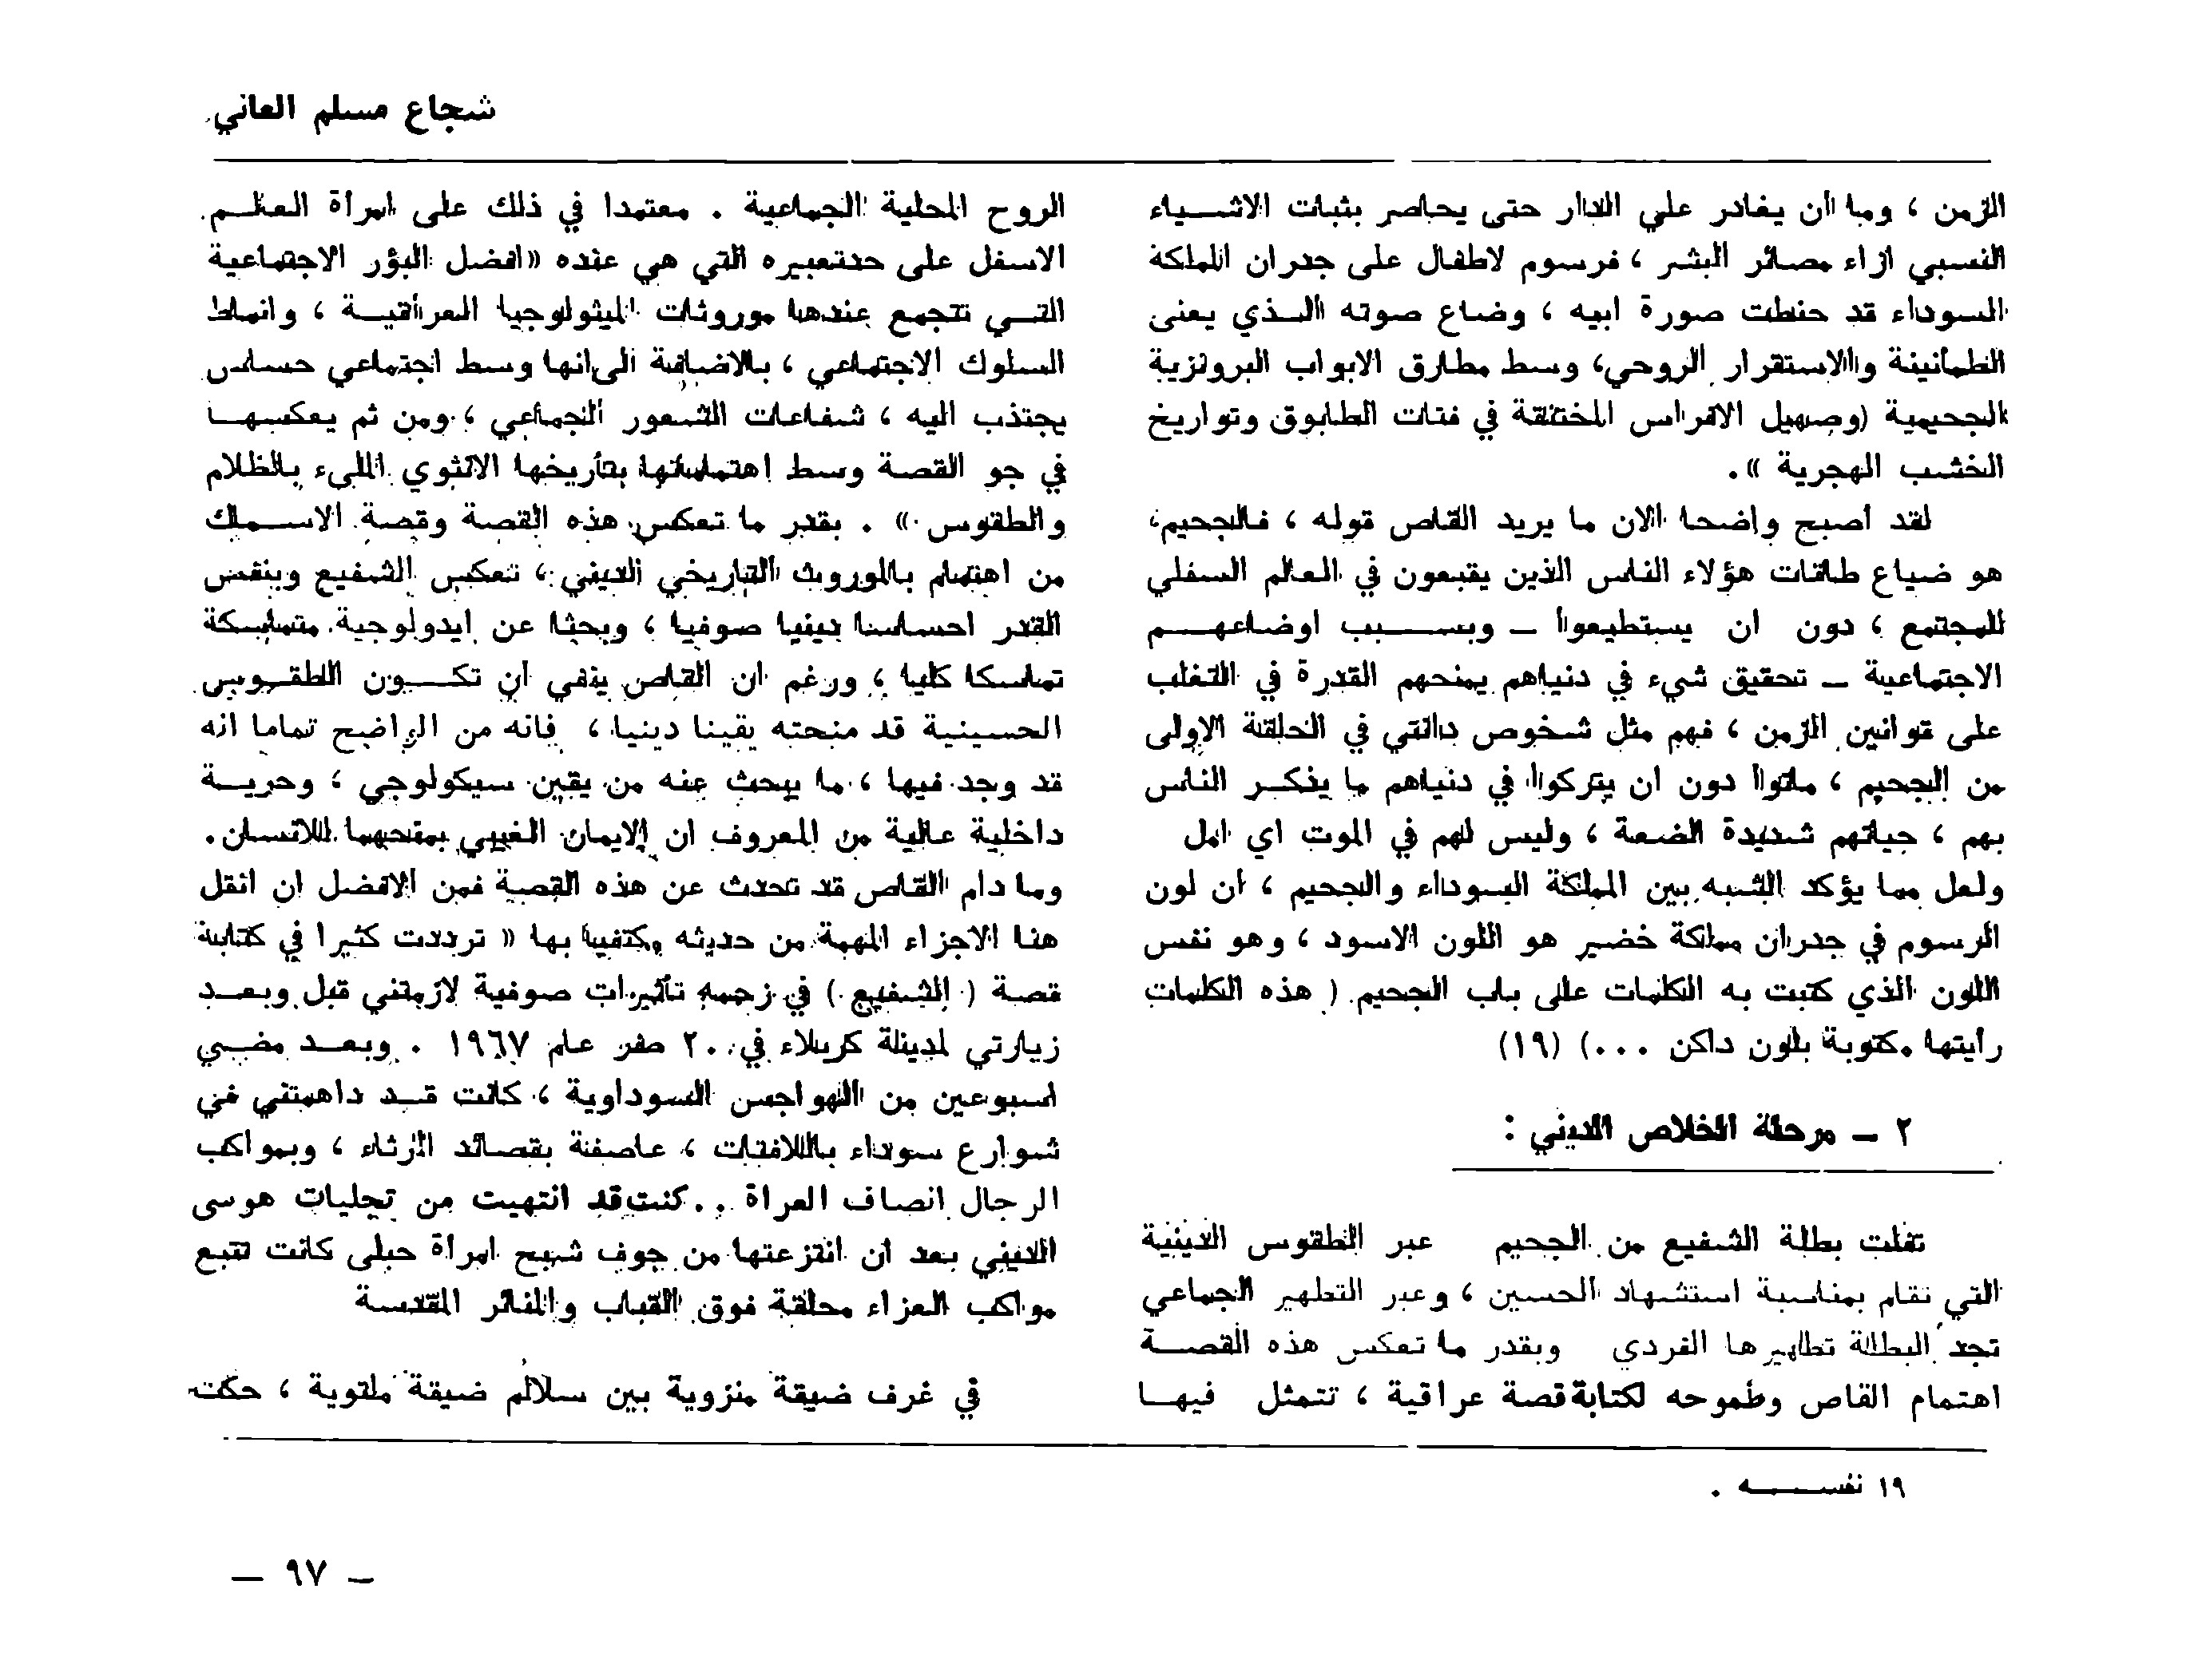 شجاع مسلم العاني
الزمن ، وما ان يغادر علي الدار حتى يحاصر بثبات الاشـــياء
النسبي ازاء مصائر البشر ، فرسوم لاطفال على جدران المملكة
السوداء قد حنطت صورة ابيه ، وضاع صوته الـــذي يعنى
الطمأنينة والاستقرار الروحي، وسط مطارق الابواب البرونزية
الجحيمية (وصهيل الافراس المختنقة في فتات الطابوق وتواريخ
الخشب الهجرية » .
لقد أصبح واضحا الان ما يريد القاص قوله ، فالجحيم،
هو ضياع طاقات هؤلاء الناس الذين يقبعون في العالم السفلي
للمجتمع ، دون ان يستطيعوا – وبســـبب اوضاعهـــم
الاجتماعية – تحقيق شيء في دنياهم يمنحهم القدرة في التغلب
على قوانين الزمن ، فهم مثل شخوص دانتي في الحلقة الاولى
من الجحيم ، ماتوا دون ان يتركوا في دنياهم ما يذكـــر الناس
بهم ، حياتهم شديدة الضعة ، وليس لهم في الموت اي امل
ولعل مما يؤكد الشبه بين المملكة السوداء والجحيم ، ان لون
الرسوم في جدران مملكة خضير هو اللون الاسود ، وهو نفس
اللون الذي كتبت به الكلمات على باب الجحيم ( هذه الكلمات
رأيتها مكتوبة بلون داكن ...) (١٩)
٢ – مرحلة الخلاص الديني :
تفلت بطلة الشفيع من الجحيم عبر الطقوس الدينية
التي تقام بمناسبة استشهاد الحسين ، وعبر التطهير الجماعي
تجد البطلة تطهيرها الفردي وبقدر ما تعكس هذه القصـــة
اهتمام القاص وطموحه لكتابة قصة عراقية ، تتمثل فيهـــا
الروح المحلية الجماعية . معتمدا في ذلك على امرأة العـالـــم
الاسفل على حد تعبيره التي هي عنده «افضل البؤر الاجتماعية
التـــي تتجمع عندها موروثات الميثولوجيا العراقيـــة ، وانماط
السلوك الاجتماعي ، بالاضافة الى انها وسط اجتماعي حساس
يجتذب اليه ، شفاعات الشعور الجماعي ، ومن ثم يعكسهـــا
في جو القصة وسط اهتماماتها بتأريخها الانثوي المليء بالظلام
والطقوس » . بقدر ما تعكس هذه القصة وقصة الاســـماك
من اهتمام بالموروث التاريخي الديني ، تعكس الشفيع وبنفس
القدر احساسا دينيا صوفيا ، وبحثا عن ايدولوجية متماسكة
تماسكا كليا ، ورغم ان القاص ينفي ان تكـــون الطقـــوس
الحسينية قد منحته يقينا دينيا ، فانه من الواضح تماما انه
قد وجد فيها ، ما يبحث عنه من يقين سيكولوجي ، وحريـــة
داخلية عالية من المعروف ان الايمان الغيبي يمنحهما للانسان .
وما دام القاص قد تحدث عن هذه القصة فمن الافضل ان انقل
هنا الاجزاء المهمة من حديثه مكتفيا بها « ترددت كثيرا في كتابة
قصة ( الشفيع ) في زحمة تأثيرات صوفية لازمتني قبل وبعـــد
زيارتي لمدينة كربلاء في ٢٠ صفر عام ١٩٦٧ . وبعـــد مضـــي
اسبوعين من الهواجس السوداوية ، كانت قـــد داهمتني في
شوارع سوداء باللافتات ، عاصفة بقصائد الرثاء ، وبمواكب
الرجال انصاف العراة .. كنت قد انتهيت من تجليات هوسى
الديني بعد ان انتزعتها من جوف شبح امرأة حبلى كانت تتبع
مواكب العزاء محلقة فوق القباب والمنائر المقدسة
في غرف ضيقة منزوية بين سلالم ضيقة ملتوية ، حكت
١٩ نفســـــه .
– ٩٧ –